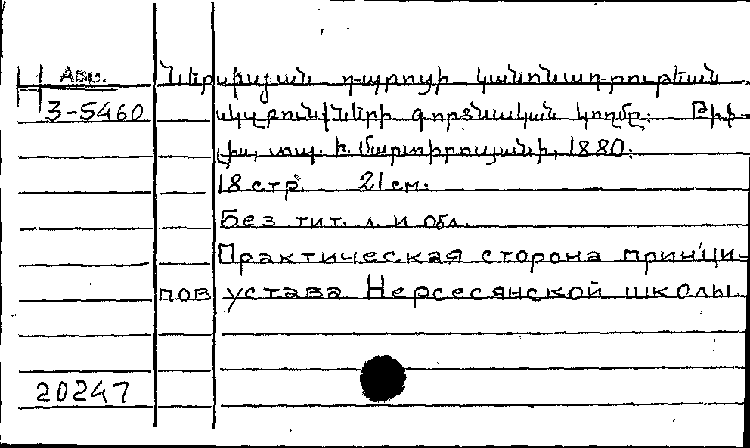 Авм. Ներսիսյան դպրոցի կանոնադրութեան
3-5460 սկզբունքների գործնական կողմը: Թիֆ-
լիս, տպ. Մարտիրոսյանի, 1880:
18 стр. 21 см.
Без тит. л. и обл.
Практическая сторона принци-
пов устава Нерсесянской школы
20247